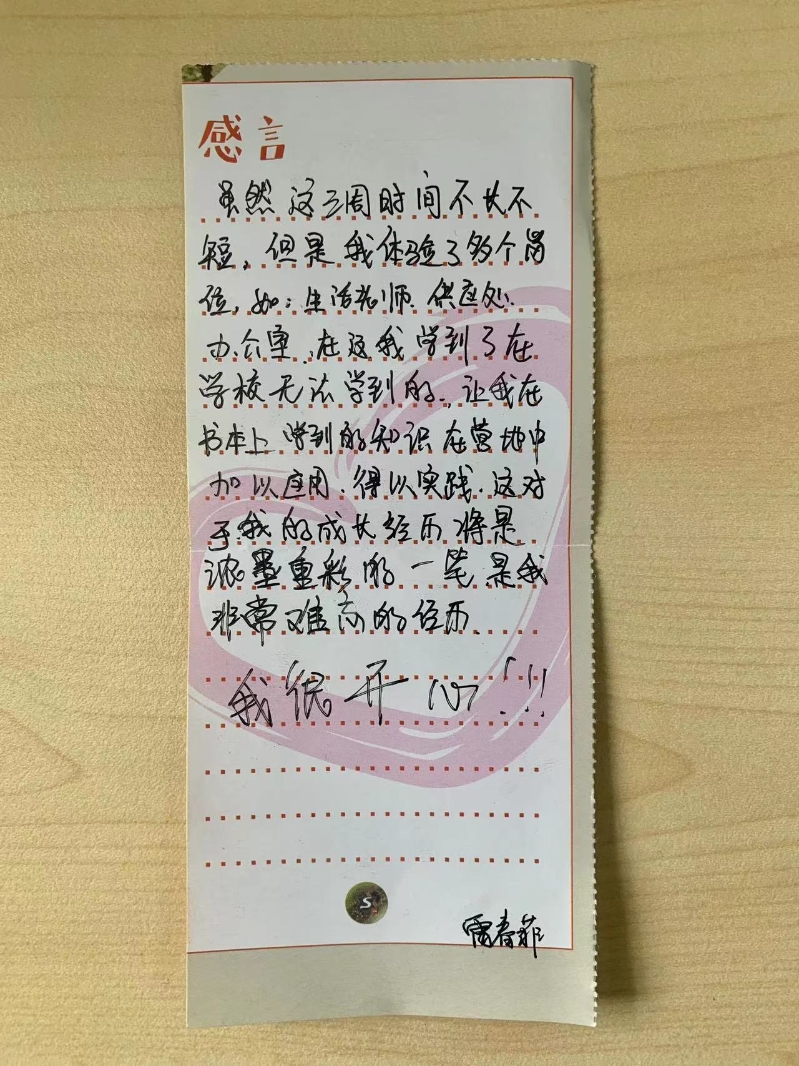 感言
虽然这三周时间不长不
短,但是我体验了多个岗
位,如:生活老师.供应处.
办公室.在这我学到了在
学校无法学到的,让我在
书本上学到的知识在营地中
加以应用.得以实践.这对
于我的成长经历将是
浓墨重彩的一笔是我
非常难高的经历.
我很开心!!!
S
雷春菲